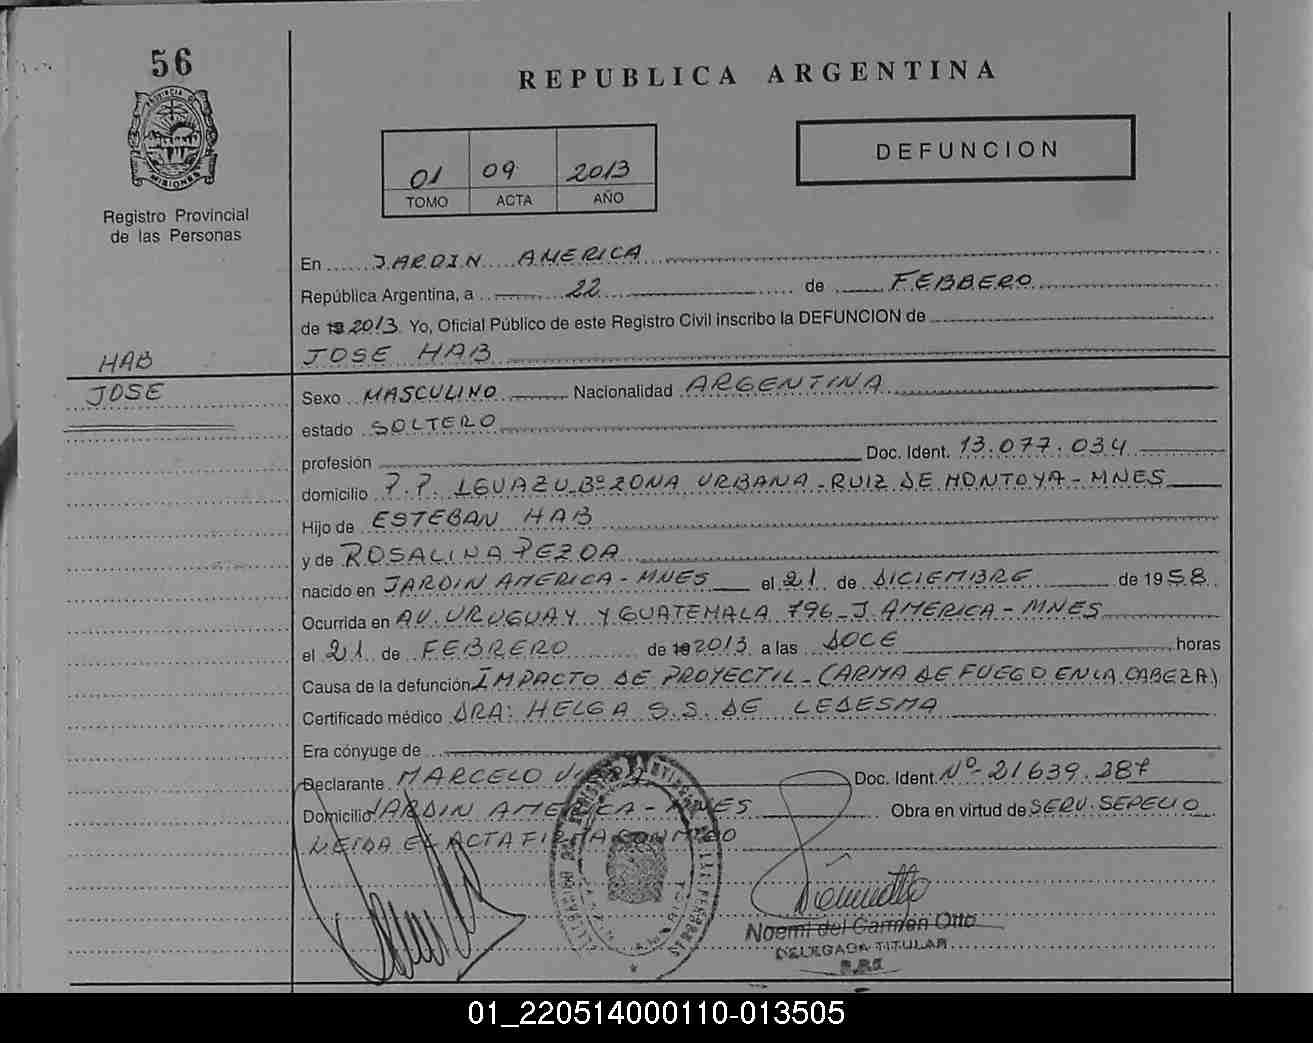 56
REPUBLICA ARGENTINA
PROVINCIA DE
MISIONES
Registro Provincial
de las Personas
01 09 2013
TOMO ACTA AÑO
DEFUNCION
En JARDIN AMERICA
República Argentina, a 22 de FEBBERO
de 19 2013 Yo, Oficial Público de este Registro Civil inscribo la DEFUNCION de
HAB
JOSE HAB
JOSE
Sexo MASCULINO Nacionalidad ARGENTINA
estado SOLTERO
profesión Doc. Ident. 13.077.034
domicilio P.P. IGUAZU Bº ZONA URBANA - RUIZ DE MONTOYA - MNES
Hijo de ESTEBAN HAB
y de ROSALINA PEZOA
nacido en JARDIN AMERICA - MNES el 21 de DICIEMBRE de 1958
Ocurrida en AV. URUGUAY Y GUATEMALA 796 - J. AMERICA - MNES
el 21 de FEBRERO de 19 2013 a las DOCE horas
Causa de la defunción IMPACTO DE PROYECTIL - (ARMA DE FUEGO EN LA CABEZA)
Certificado médico DRA: HELGA S.S. DE LEDESMA
Era cónyuge de
Declarante MARCELO Doc. Ident. Nº 21.639.287
Domicilio JARDIN AMERICA - MNES Obra en virtud de SERV. SEPELIO
LEIDA EL ACTA FIRMA CONMIGO
Noemi del Carmen Otto
DELEGADA TITULAR
01_220514000110-013505